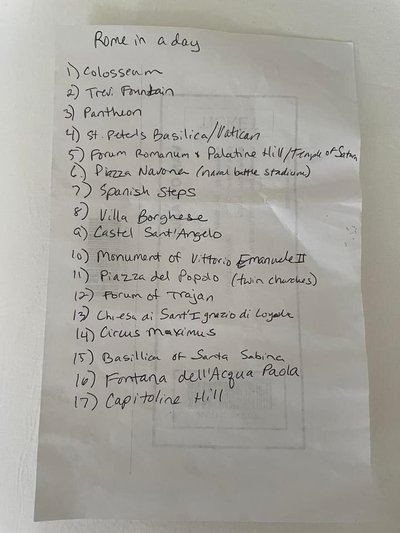 Rome in a day
1) Colosseum
2) Trevi Fountain
3) Pantheon
4) St. Peter's Basilica/Vatican
5) Forum Romanum & Palatine Hill/Temple of Saturn
6) Piazza Navona (naval battle stadium)
7) Spanish Steps
8) Villa Borghese
9) Castel Sant'Angelo
10) Monument of Vittorio Emanuele II
11) Piazza del Popolo (twin churches)
12) Forum of Trajan
13) Chiesa di Sant'Ignazio di Loyola
14) Circus Maximus
15) Basillica of Santa Sabina
16) Fontana dell'Acqua Paola
17) Capitoline Hill